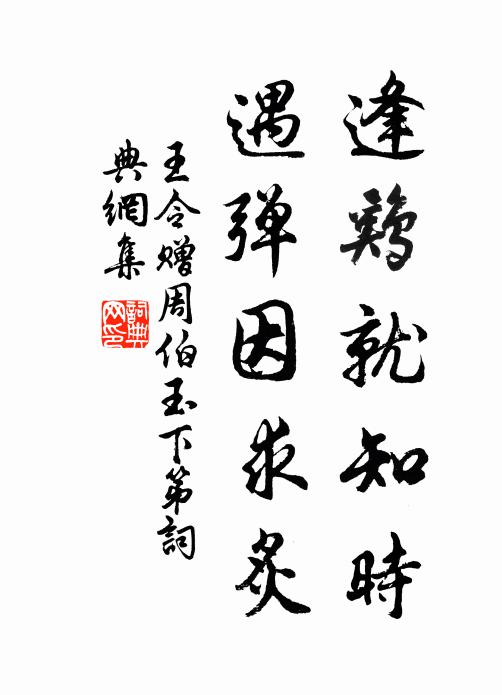 逢鷄就知時
遇弹因求炙
王令赠周伯玉下第詞
典網集
詞典
网印